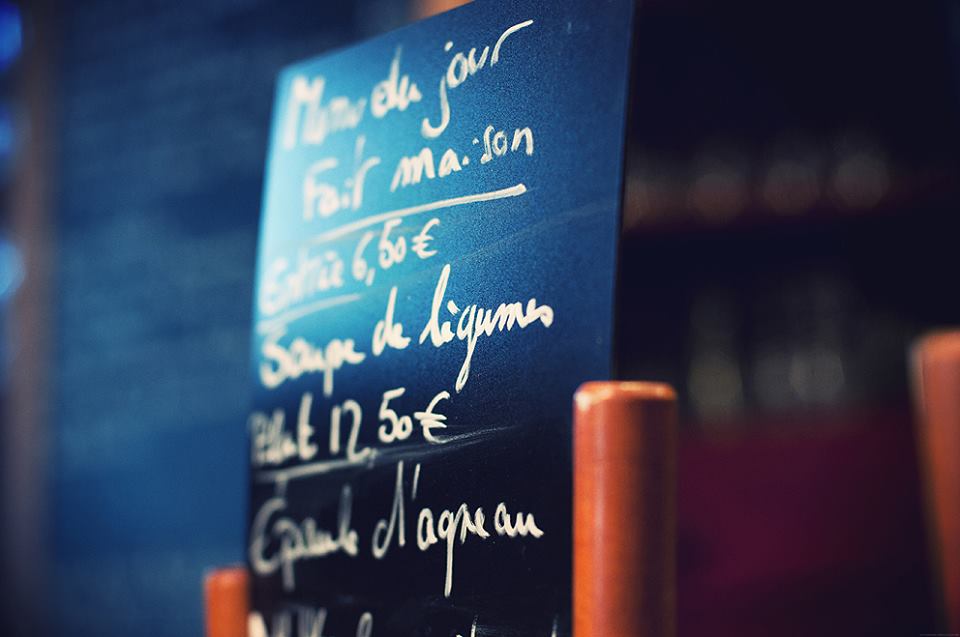 Menu du jour
Fait maison
Entrée 6,50€
Soupe de légumes
Plat 12,50€
Épaule d'agneau